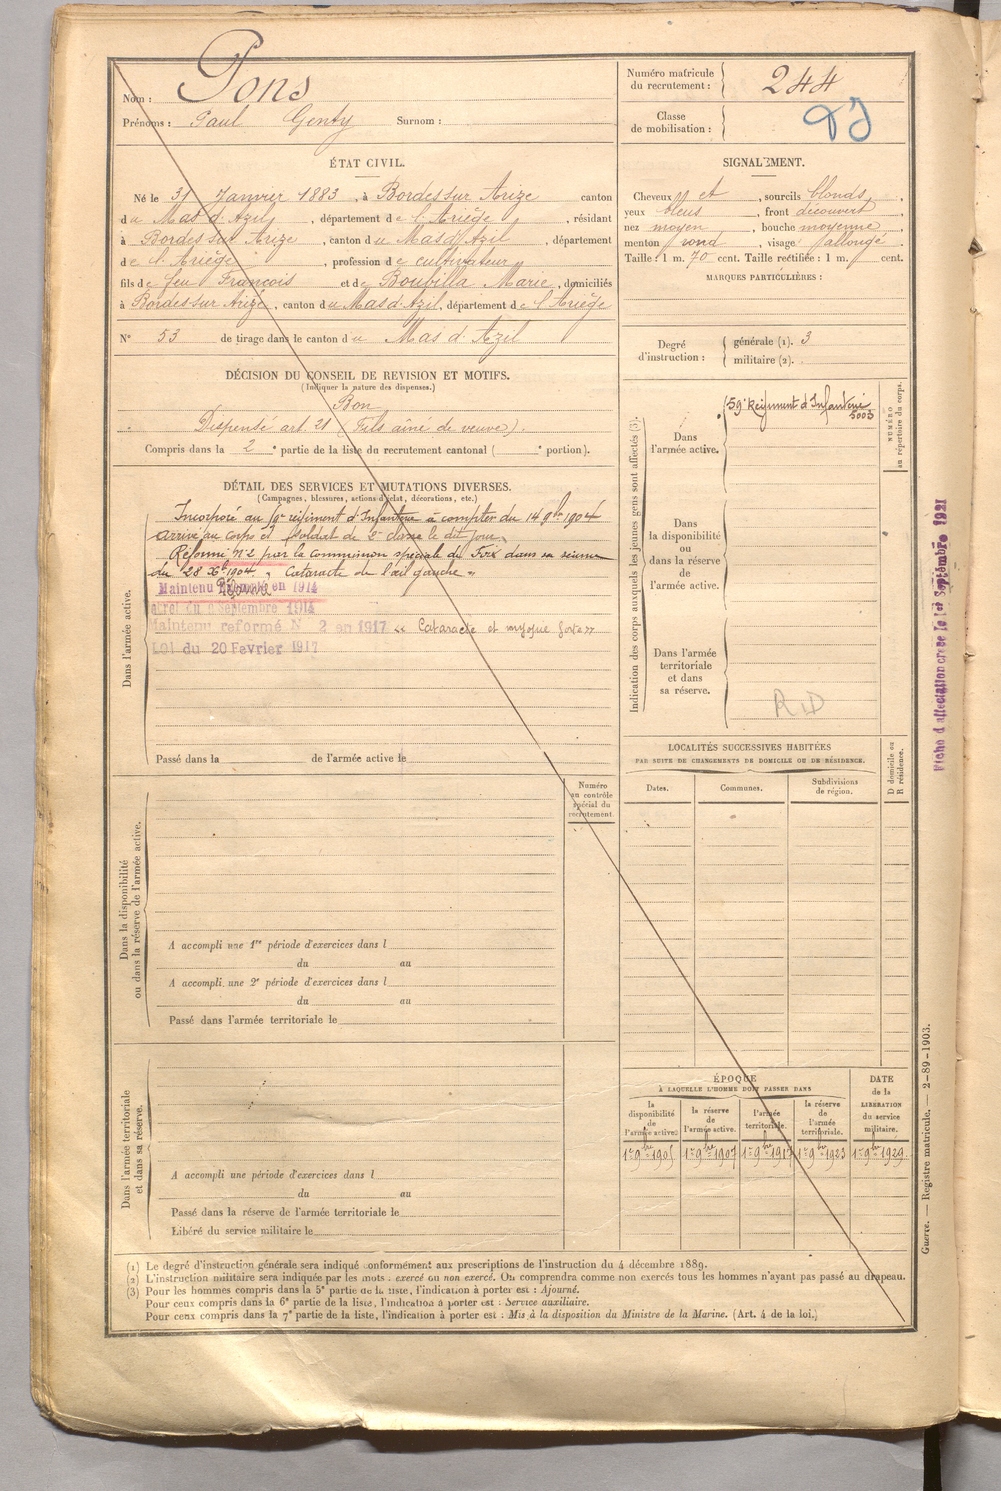 Nom : Pons
Prénoms : Paul Genty Surnom :
Numéro matricule du recrutement : 244
Classe de mobilisation :
ÉTAT CIVIL.
Né le 31 Janvier 1883, à Bordes sur Arize canton
du Mas d'Azil, département de l'Ariège, résidant
à Bordes sur Arize, canton du Mas d'Azil, département
de l'Ariège, profession de cultivateur
fils de feu François et de Boubilla Marie, domiciliés
à Bordes sur Arize, canton du Mas d'Azil, département de l'Ariège
N° 53 de tirage dans le canton du Mas d'Azil
SIGNALEMENT.
Cheveux et, sourcils blonds,
yeux bleus, front découvert
nez moyen, bouche moyenne
menton rond, visage allongé
Taille : 1 m. 70 cent. Taille rectifiée : 1 m. cent.
MARQUES PARTICULIÈRES :
Degré d'instruction : générale (1). 3
militaire (2).
DÉCISION DU CONSEIL DE REVISION ET MOTIFS.
(Indiquer la nature des dispenses.)
Bon
Dispensé art. 21 (Fils aîné de veuve).
Compris dans la 2e partie de la liste du recrutement cantonal ( e portion).
DÉTAIL DES SERVICES ET MUTATIONS DIVERSES.
(Campagnes, blessures, actions d'éclat, décorations, etc.)
Incorporé au régiment d'Infanterie à compter du 14 9bre 1904
Arrivé au corps et soldat de 2e classe le dit jour.
Réformé N°2 par la Commission spéciale de Foix dans sa séance
du 28 Xbre 1904 "Cataracte de l'œil gauche"
Maintenu en 1914
du Septembre 1914
Maintenu reformé N° 2 en 1917 "Cataracte et myopie forte"
Loi du 20 Fevrier 1917
Dans l'armée active.
Passé dans la de l'armée active le
Numéro au contrôle spécial du recrutement.
Dans la disponibilité ou dans la réserve de l'armée active.
A accompli une 1re période d'exercices dans l
du au
A accompli une 2e période d'exercices dans l
du au
Passé dans l'armée territoriale le
Dans l'armée territoriale et dans sa réserve.
A accompli une période d'exercices dans l
du au
Passé dans la réserve de l'armée territoriale le
Libéré du service militaire le
Indication des corps auxquels les jeunes gens sont affectés (3).
Dans l'armée active.
59e Régiment d'Infanterie
5003
NUMÉRO au répertoire du corps.
Dans la disponibilité ou dans la réserve de l'armée active.
Dans l'armée territoriale et dans sa réserve.
RD
LOCALITÉS SUCCESSIVES HABITÉES
PAR SUITE DE CHANGEMENTS DE DOMICILE OU DE RÉSIDENCE.
Dates. Communes. Subdivisions de région.
D domicile ou R résidence.
ÉPOQUE
À LAQUELLE L'HOMME DOIT PASSER DANS
la disponibilité de l'armée active.
la réserve de l'armée active.
l'armée territoriale.
la réserve de l'armée territoriale.
DATE de la LIBÉRATION du service militaire.
1er 9bre 1905 1er 9bre 1907 1er 9bre 1917 1er 9bre 1923 1er 9bre 1929
(1) Le degré d'instruction générale sera indiqué conformément aux prescriptions de l'instruction du 4 décembre 1889.
(2) L'instruction militaire sera indiquée par les mots : exercé ou non exercé. On comprendra comme non exercés tous les hommes n'ayant pas passé au drapeau.
(3) Pour les hommes compris dans la 5e partie de la liste, l'indication à porter est : Ajourné.
Pour ceux compris dans la 6e partie de la liste, l'indication à porter est : Service auxiliaire.
Pour ceux compris dans la 7e partie de la liste, l'indication à porter est : Mis à la disposition du Ministre de la Marine. (Art. 4 de la loi.)
Guerre. — Registre matricule. — 2-89-1903.
Fiche d'affectation créée le 1er Septembre 1921